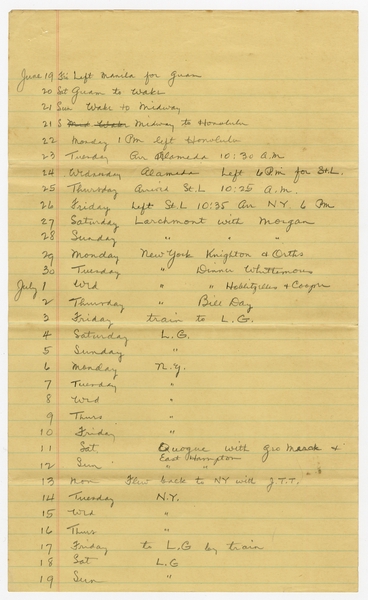 June 19 Fri Left Manila for Guam
20 Sat Guam to Wake
21 Sun Wake to Midway
21 S Midway to Honolulu
22 Monday 1 Pm left Honolulu
23 Tuesday Arr Alameda 10:30 A.M.
24 Wednesday Alameda Left 6 Pm for St.L.
25 Thursday Arrive St.L 10:25 A.M.
26 Friday Left St.L 10:35 Arr NY 6 Pm
27 Saturday Larchmont with Morgan
28 Sunday " " "
29 Monday New York Knighton & Orths
30 Tuesday " Dinner Whittemores
July 1 Wed " "
2 Thursday " Bill Day
3 Friday train to L.G.
4 Saturday L.G.
5 Sunday "
6 Monday N.Y.
7 Tuesday "
8 Wed "
9 Thurs "
10 Friday "
11 Sat Quogue with Geo &
East Hampton
12 Sun " "
13 Mon Flew back to NY with J.T.T.
14 Tuesday N.Y.
15 Wed "
16 Thurs "
17 Friday to L.G by train
18 Sat L.G
19 Sun "